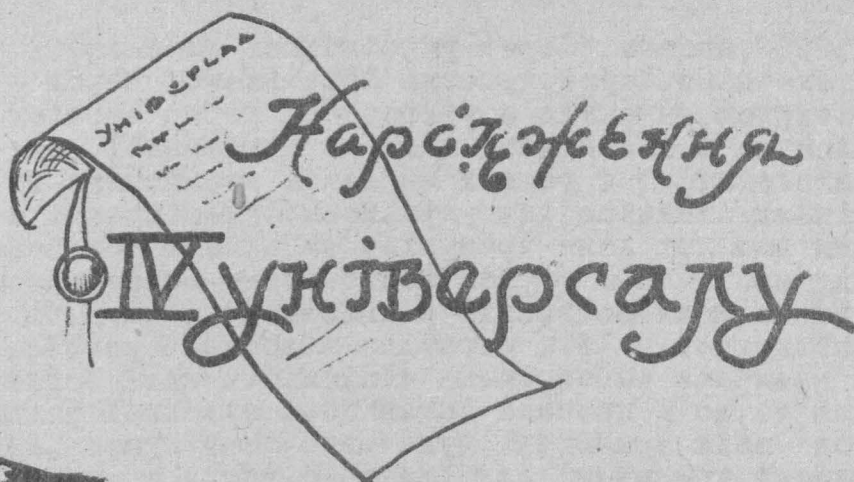 УНІВЕРСАЛ
Народження
IV універсалу